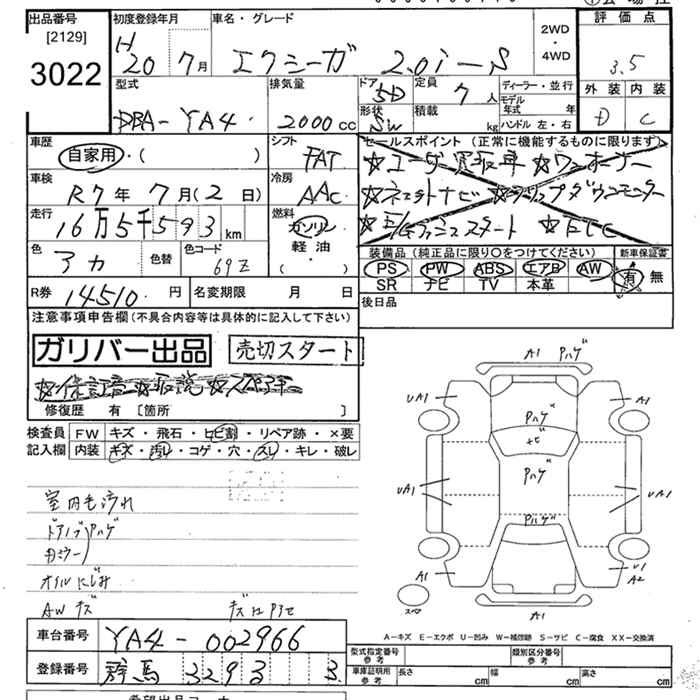 出品番号
[2129]
3022
初度登録年月
H20 7月
車名・グレード
エクシーガ 2.0i-S
2WD
・
4WD
評価点
3.5
外装 内装
D C
型式
DBA-YA4
排気量
2000cc
ドア
5D
形状
SW
定員
7人
積載
kg
ディーラー・並行
モデル年式 年
ハンドル 左・右
車歴
自家用・( )
シフト
FAT
車検
R7年 7月(2日)
冷房
AAC
走行
16万5千593km
燃料
ガソリン
軽油・
( )
色
アカ
色替
色コード
69Z
R券
14510円
名変期限 月 日
セールスポイント(正常に機能するものに限ります)
☆ユーザー買取車 ☆ワンオーナー
☆ETC
装備品(純正品に限り○をつけてください)
新車保証書
PS PW ABS エアB AW
SR ナビ TV 本革
有 無
後日品
注意事項申告欄(不具合内容等は具体的に記入して下さい)
ガリバー出品 売切スタート
修復歴 有 [箇所 ]
検査員記入欄
FW キズ・飛石・ヒビ割・リペア跡・×要
内装 キズ・汚れ・コゲ・穴・スレ・キレ・破レ
室内毛汚れ
ドアノブPハゲ
オイルにじみ
AWキズ
A1 Pハゲ
UA1
A1
Pハゲ
ナビ
Pハゲ
UA1
UA1
Pハゲ
A1
U1
A2
スペア
A1
A-キズ E-エクボ U-凹み W-補修跡 S-サビ C-腐食 XX-交換済
車台番号 YA4-002966
登録番号 群馬 329 3
型式指定番号 参考
類別区分番号 参考
車庫証明用 参考
長さ cm 幅 cm 高さ cm